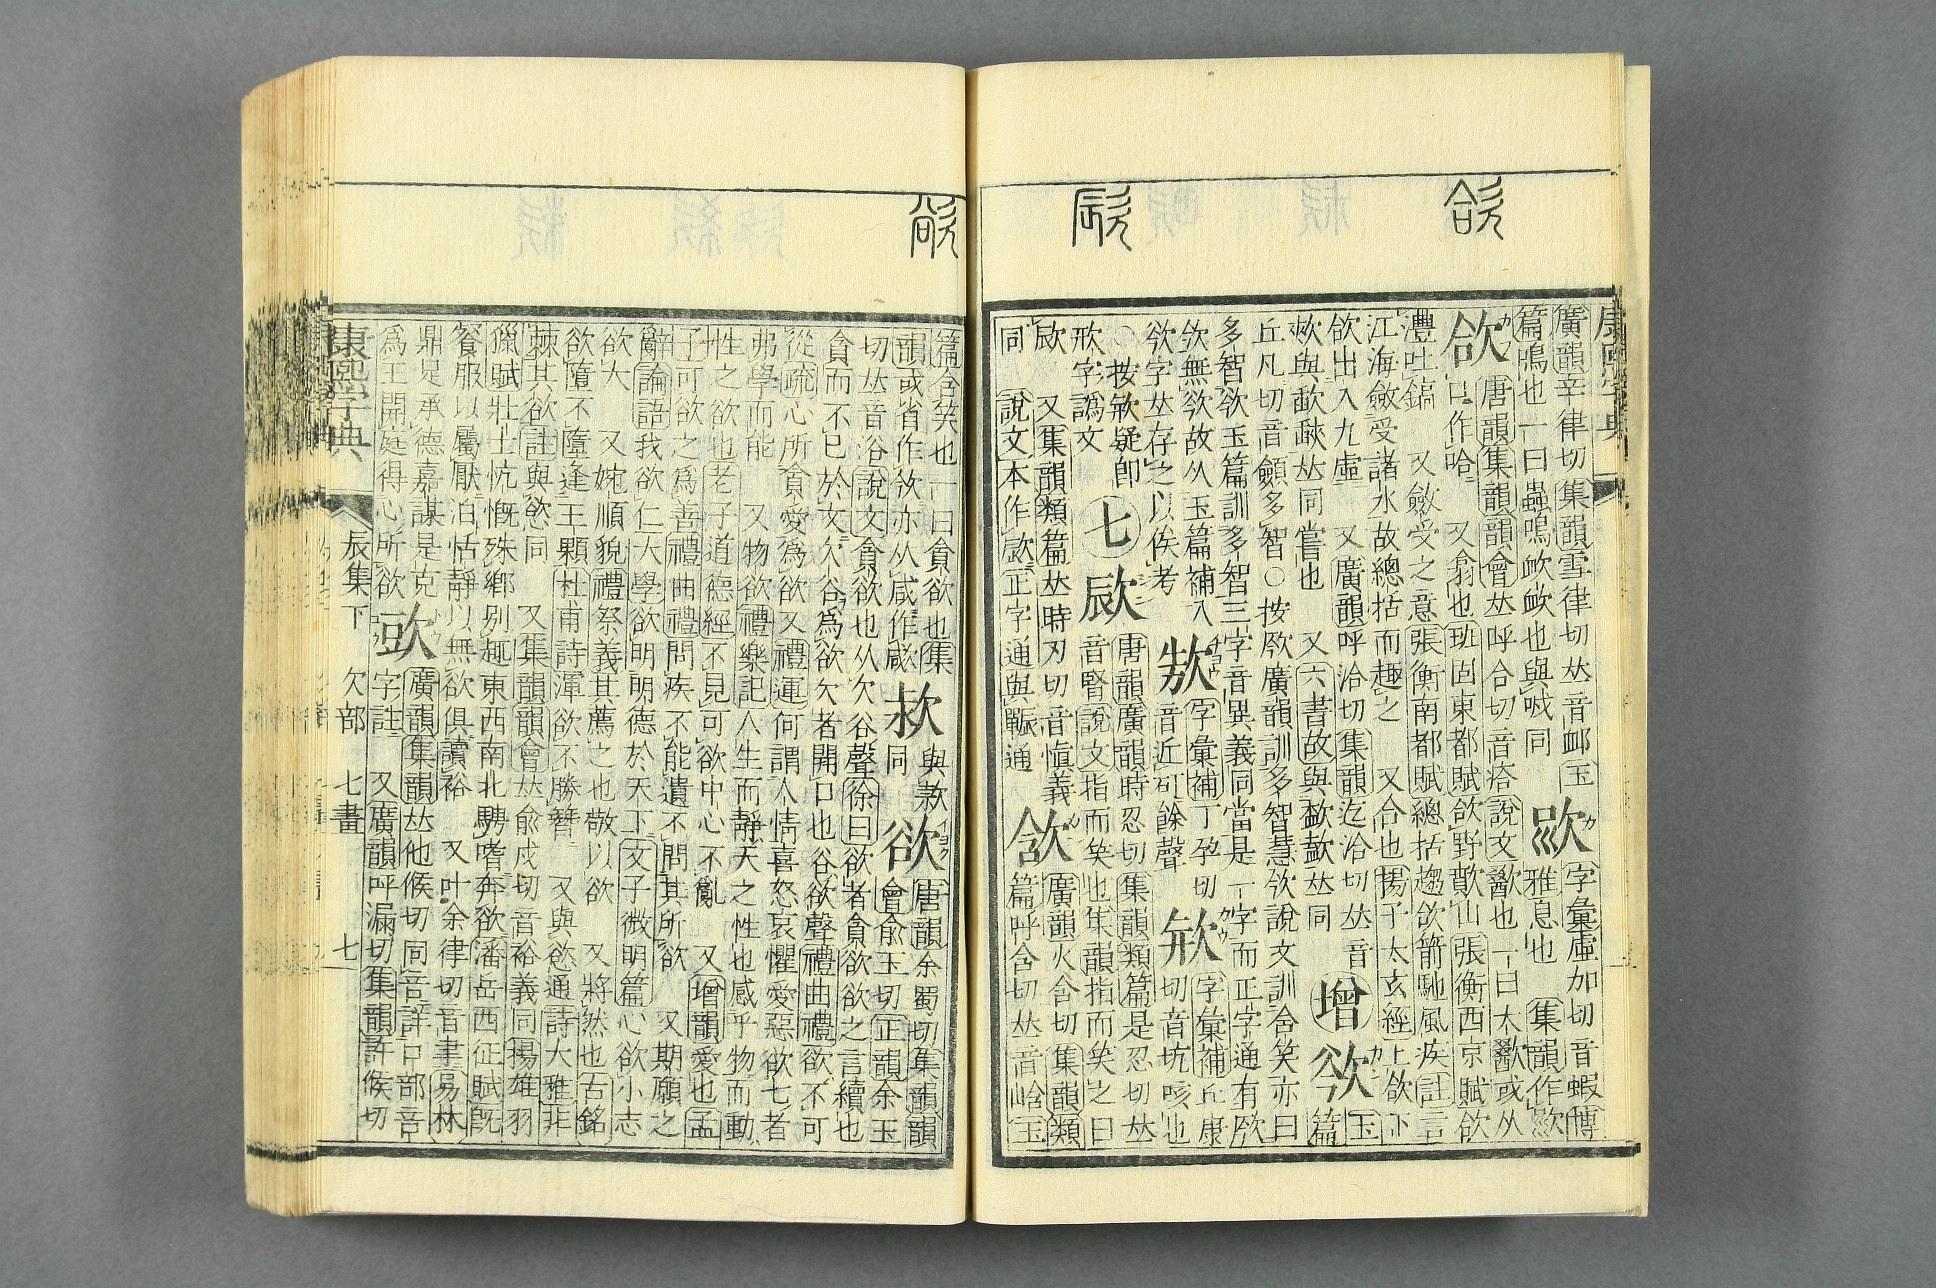 廣韻辛律切集韻雪律切𠀤音䘏玉
篇鳴也一曰蟲鳴欰欰也與㖅同
字彙虛加切音蝦博
雅息也 集韻作
欱
唐韻集韻韻會𠀤呼合切音㾑說文歠也一曰大歠或从
口作哈 又翕也班固東都賦欱野歕山張衡西京賦欱
灃吐鎬 又斂受之意張衡南都賦總括趨欱箭馳風疾註言
江海斂受諸水故總括而趣之 又合也揚子太玄經上欱下
欱出入九虛 又廣韻呼洽切集韻迄洽切𠀤音
增
玉
篇
丘凡切音顩多智○按欦廣韻訓多智慧欦說文訓含笑亦曰
多智欦玉篇訓多智三字音異義同當是一字而正字通有欦
欦字𠀤存之以俟考
字彙補丁孕切
音近可餘聲
字彙補丘康
切音坑咳也
○按欮疑卽
字譌文
七
唐韻廣韻時忍切集韻類篇是忍切𠀤
音腎說文指而笑也集韻指而笑之曰
又集韻類篇𠀤時刃切音愼義
同 說文本作 正字通與 通
廣韻火含切集韻類
篇呼含切𠀤音㟏玉
篇含笑也一曰貪欲也集
韻或省作欦亦从咸作㰹
欶
與欵
同
欲
唐韻余蜀切集韻韻
會俞玉切正韻余玉
切𠀤音浴說文貪欲也从欠谷聲徐曰欲者貪欲欲之言續也
貪而不已於文欠谷爲欲欠者開口也谷欲聲禮曲禮欲不可
從疏心所貪愛爲欲又禮運何謂人情喜怒哀懼愛惡欲七者
弗學而能 又物欲禮樂記人生而靜天之性也感乎物而動
性之欲也老子道德經不見可欲中心不亂 又增韻愛也孟
子可欲之爲善禮曲禮問疾不能遺不問其所欲 又期願之
辭論語我欲仁大學欲明明德於天下文子微明篇心欲小志
欲大 又婉順貌禮祭義其薦之也敬以欲 又將然也古銘
欲墮不墮逢王顆杜甫詩渾欲不勝簪 又與慾通詩大雅匪
棘其欲註與慾同 又集韻韻會𠀤俞戍切音裕義同揚雄羽
獵賦壯士忼慨殊鄉別趣東西南北騁嗜奔欲潘岳西征賦旣
餐服以屬厭泊恬靜以無欲俱讀裕 又叶余律切音聿易林
鼎足承德嘉謀是克
爲王開庭得心所欲
廣韻集韻𠀤他候切同咅詳口部咅
字註 又廣韻呼漏切集韻許候切
康熙字典
辰集下
欠部
七畫
七